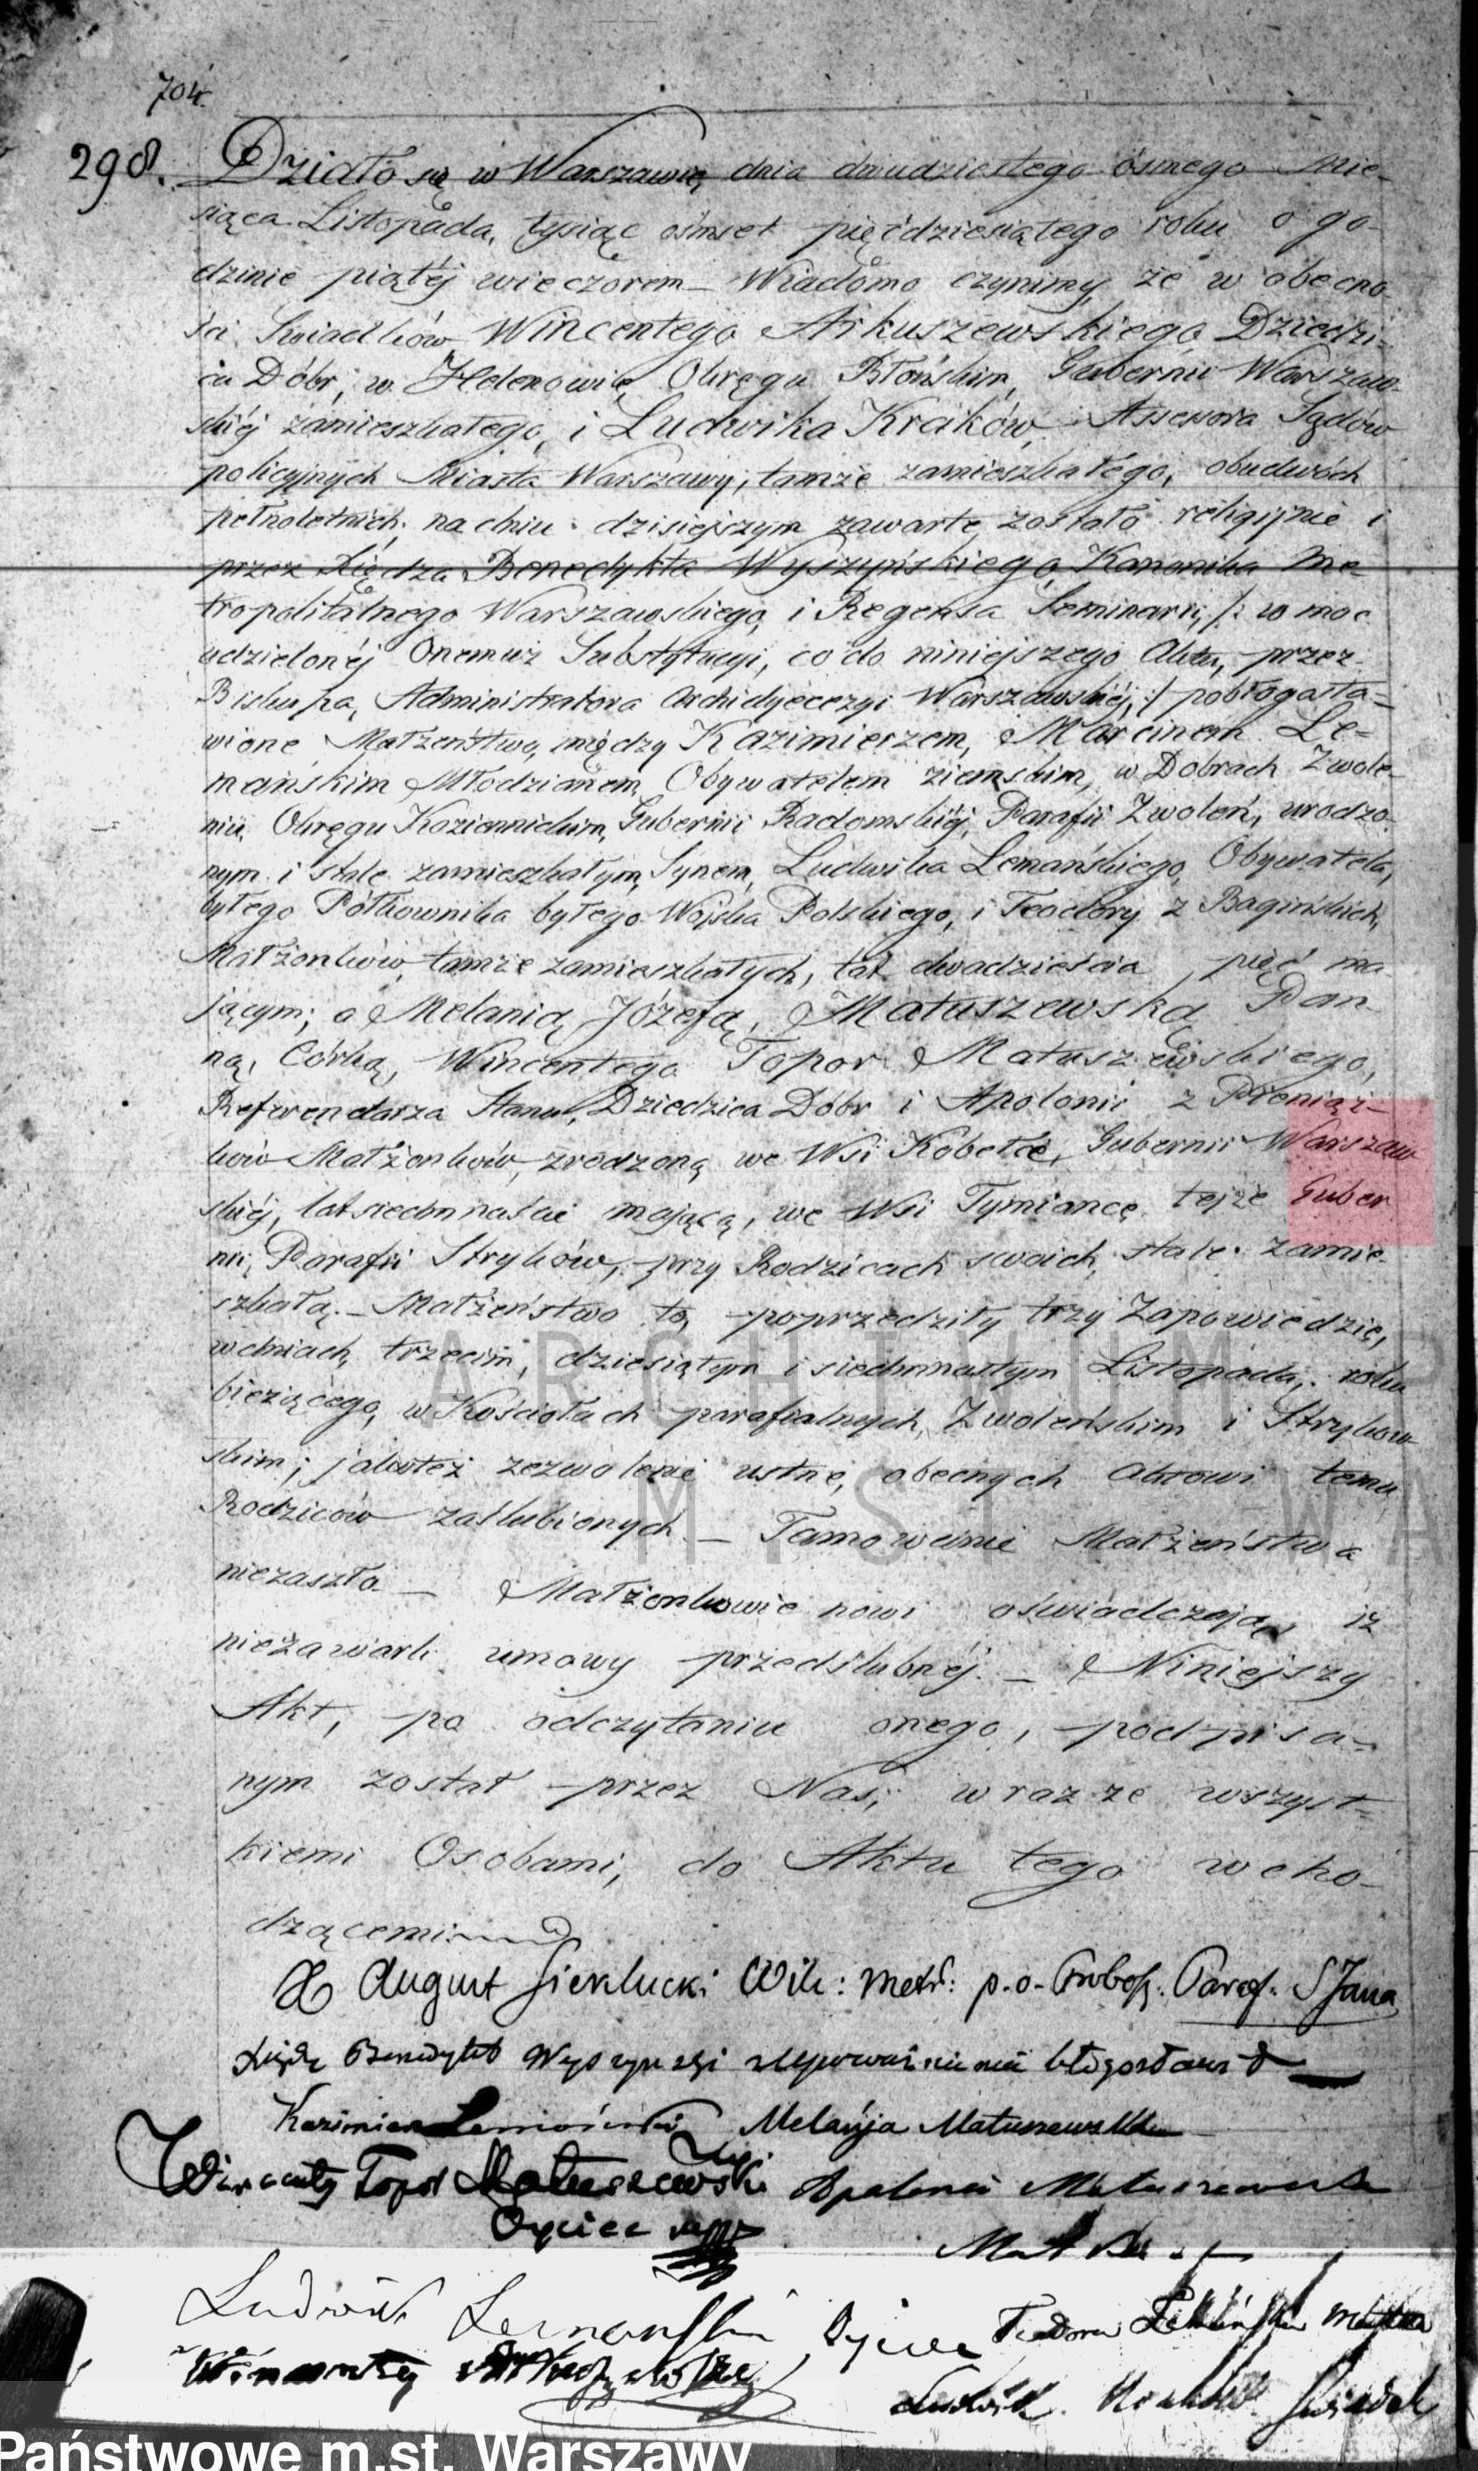 704.
298. Działo się w Warszawie, dnia dwudziestego ósmego Mie-
siąca Listopada, tysiąc ośmset pięćdziesiątego roku o go-
dzinie piątéj wieczorem – Wiadomo czynimy, że w obecno-
ści Świadków Wincentego Arkuszewskiego Dziedzi-
ca Dóbr, w Helenowie, Okręgu Błońskim, Gubernii Warszaw-
skiéj zamieszkałego, i Ludwika Kraków, Assessora Sądów
policyjnych Miasta Warszawy, tamże zamieszkałego, obudwóch
pełnoletnich, na dniu dzisiejszym zawarte zostało religijnie i
przez Księdza Benedykta Wyszyńskiego, Kanonika Me-
tropolitalnego Warszawskiego, i Regensa Seminarii, /: w moc
udzielonéj Onemuż Substytucyi, co do niniejszego Aktu, przez
Biskupa, Administratora Archidyecezyi Warszawskiéj, :/ pobłogosła-
wione Małżeństwo, między Kazimierzem, Marcinem Le-
mańskim Młodzianem, Obywatelem ziemskim, w Dobrach Zwole-
niu, Okręgu Kozienickim, Gubernii Radomskiéj, Parafii Zwoleń, urodzo-
nym i stale zamieszkałym, Synem, Ludwika Lemańskiego, Obywatela,
byłego Półkownika byłego Wojska Polskiego, i Teodory z Bagińskich,
Małżonków, tamże zamieszkałych, lat dwadzieścia pięć ma-
jącym; a Melanią Józefą, Matuszewską Pan-
ną, Córką, Wincentego Topor Matuszewskiego,
Referendarza Stanu, Dziedzica Dóbr i Apolonii z Pieniąż-
ków Małżonków, zrodzoną we Wsi Kobełce, Gubernii Warszaw
skiéj, lat siedmnaście mającą, we Wsi Tymiance tejże Guber
nii, Parafii Stryków, przy Rodzicach swoich, stale zamie-
szkałą. – Małżeństwo to, poprzedziły trzy Zapowiedzie,
w dniach, trzecim, dziesiątym i siedmnastym Listopada, roku
bieżącego, w Kościołach parafialnych, Zwoleńskim i Strykow
skim; jakoteż zezwolenie ustne, obecnych Aktowi temu
Rodziców zaślubionych – Tamowanie Małżeństwa
niezaszło – Małżonkowie nowi oświadczają, iż
niezawarli umowy przedślubnéj. – Niniejszy
Akt, po odczytaniu onego, podpisa-
nym został przez Nas, wraz ze wszyst-
kiemi Osobami, do Aktu tego wcho-
dzącemi
X August Sieklucki Wik: Metr: p.o. Probosz. Paraf. S Jana
Ksiądz Benedykt Wyszyński z upoważnienia błogosławił
Kazimierz Lemański Melanja Matuszewska
Wincenty Topor Matuszewski Apolonia Matuszewska
Oyciec Matka
Ludwik Lemański Oyciec Teodora Lemańska Matka
Wincenty Arkuszewski Ludwik Kraków Świadek
ARCHIWUM P
M ST WA
Państwowe m.st. Warszawy